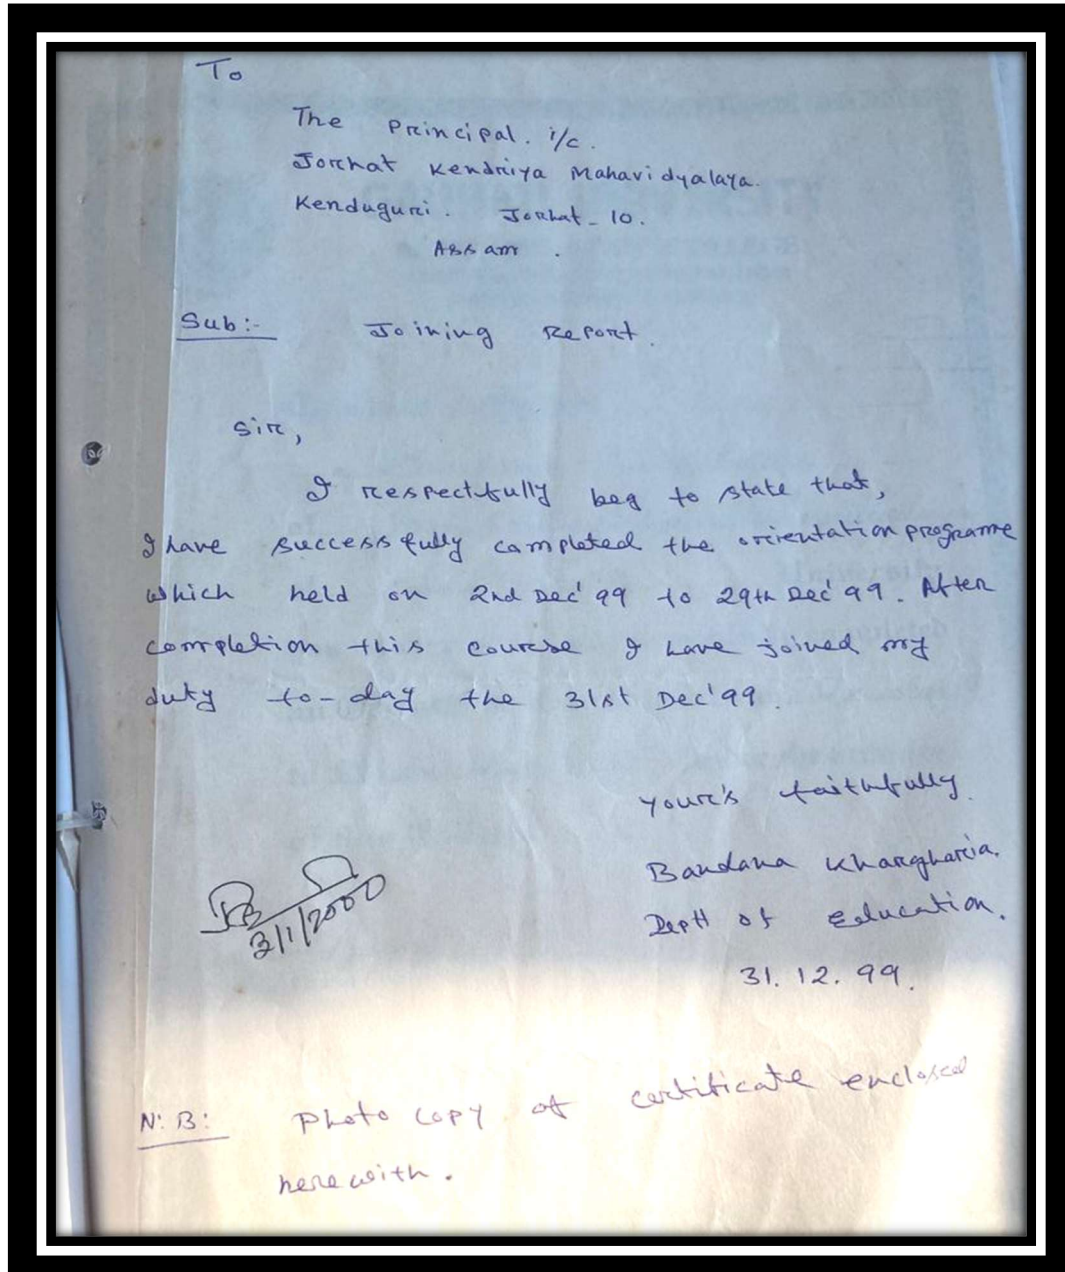 To
The Principal. i/c.
Jorhat Kendriya Mahavidyalaya.
Kenduguri. Jorhat-10.
Assam.
Sub:- Joining Report.
Sir,
I respectfully beg to state that,
I have successfully completed the orientation programme
which held on 2nd Dec'99 to 29th Dec'99. After
completion this course I have joined my
duty to-day the 31st Dec'99.
Your's faithfully.
Bandana Khargharia.
Deptt of Education.
31.12.99.
3/1/2000
N:B: Photo copy of certificate enclosed
herewith.